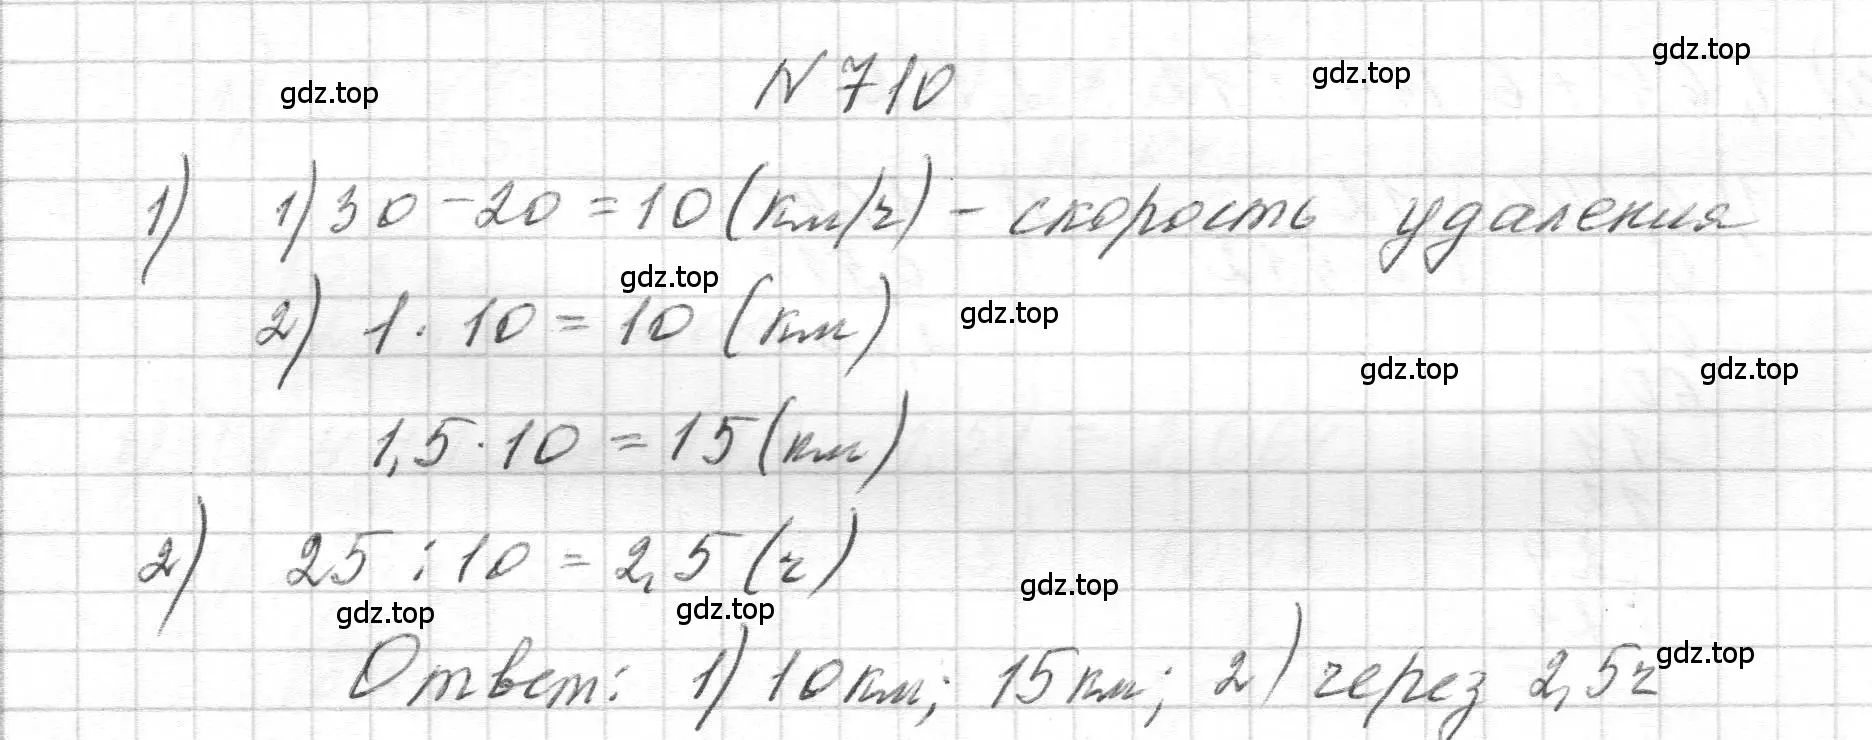 N 710
1) 1) 30 - 20 = 10 (км/ч) - скорость удаления
2) 1 · 10 = 10 (км)
1,5 · 10 = 15 (км)
2) 25 : 10 = 2,5 (ч)
Ответ: 1) 10 км; 15 км; 2) через 2,5 ч
gdz.top
gdz.top
gdz.top
gdz.top
gdz.top
gdz.top
gdz.top
gdz.top
gdz.top
gdz.top
gdz.top